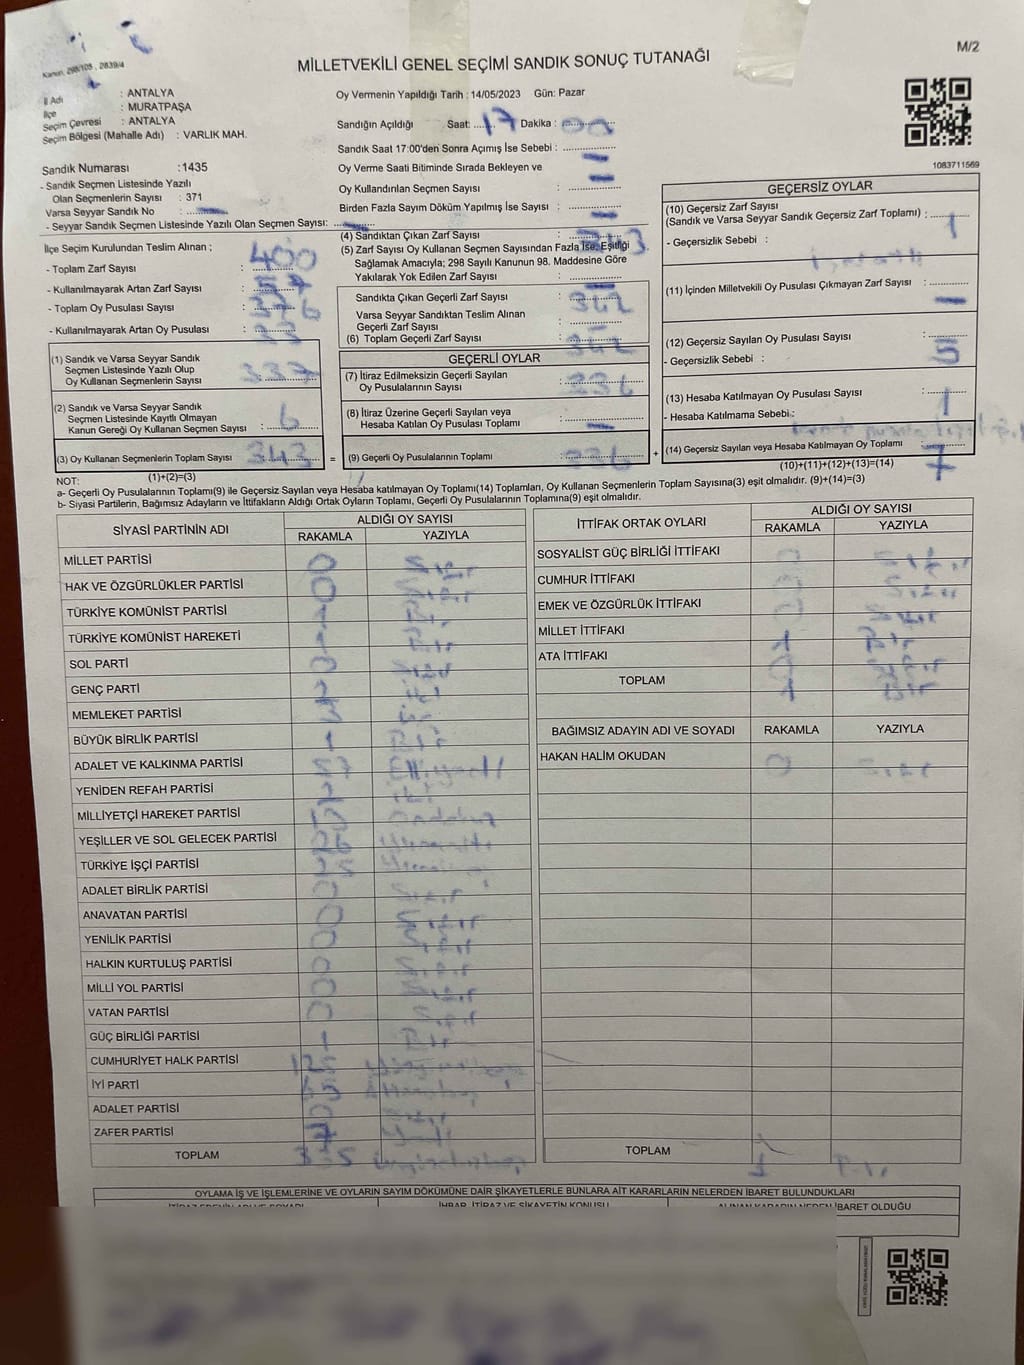 Kanun, 298/105 , 2839/4
M/2
MİLLETVEKİLİ GENEL SEÇİMİ SANDIK SONUÇ TUTANAĞI
İl Adı : ANTALYA
İlçe : MURATPAŞA
Seçim Çevresi : ANTALYA
Seçim Bölgesi (Mahalle Adı) : VARLIK MAH.
Sandık Numarası :1435
- Sandık Seçmen Listesinde Yazılı
Olan Seçmenlerin Sayısı : 371
Varsa Seyyar Sandık No :
- Seyyar Sandık Seçmen Listesinde Yazılı Olan Seçmen Sayısı:
Oy Vermenin Yapıldığı Tarih : 14/05/2023 Gün: Pazar
Sandığın Açıldığı Saat: 17 Dakika : 00
Sandık Saat 17:00'den Sonra Açımış İse Sebebi :
Oy Verme Saati Bitiminde Sırada Bekleyen ve
Oy Kullandırılan Seçmen Sayısı :
Birden Fazla Sayım Döküm Yapılmış İse Sayısı :
1083711569
İlçe Seçim Kurulundan Teslim Alınan ;
- Toplam Zarf Sayısı : 400
- Kullanılmayarak Artan Zarf Sayısı : 57
- Toplam Oy Pusulası Sayısı : 376
- Kullanılmayarak Artan Oy Pusulası : 33
(1) Sandık ve Varsa Seyyar Sandık
Seçmen Listesinde Yazılı Olup
Oy Kullanan Seçmenlerin Sayısı : 337
(2) Sandık ve Varsa Seyyar Sandık
Seçmen Listesinde Kayıtlı Olmayan
Kanun Gereği Oy Kullanan Seçmen Sayısı : 6
(3) Oy Kullanan Seçmenlerin Toplam Sayısı : 343
(1)+(2)=(3)
(4) Sandıktan Çıkan Zarf Sayısı : 343
(5) Zarf Sayısı Oy Kullanan Seçmen Sayısından Fazla İse, Eşitliği
Sağlamak Amacıyla; 298 Sayılı Kanunun 98. Maddesine Göre
Yakılarak Yok Edilen Zarf Sayısı :
Sandıkta Çıkan Geçerli Zarf Sayısı : 342
Varsa Seyyar Sandıktan Teslim Alınan
Geçerli Zarf Sayısı :
(6) Toplam Geçerli Zarf Sayısı : 342
GEÇERLİ OYLAR
(7) İtiraz Edilmeksizin Geçerli Sayılan
Oy Pusulalarının Sayısı : 336
(8) İtiraz Üzerine Geçerli Sayılan veya
Hesaba Katılan Oy Pusulası Toplamı :
= (9) Geçerli Oy Pusulalarının Toplamı : 336 +
GEÇERSİZ OYLAR
(10) Geçersiz Zarf Sayısı
(Sandık ve Varsa Seyyar Sandık Geçersiz Zarf Toplamı) : 1
- Geçersizlik Sebebi :
(11) İçinden Milletvekili Oy Pusulası Çıkmayan Zarf Sayısı :
(12) Geçersiz Sayılan Oy Pusulası Sayısı : 5
- Geçersizlik Sebebi :
(13) Hesaba Katılmayan Oy Pusulası Sayısı : 1
- Hesaba Katılmama Sebebi :
(14) Geçersiz Sayılan veya Hesaba Katılmayan Oy Toplamı : 7
(10)+(11)+(12)+(13)=(14)
NOT:
a- Geçerli Oy Pusulalarının Toplamı(9) ile Geçersiz Sayılan veya Hesaba katılmayan Oy Toplamı(14) Toplamları, Oy Kullanan Seçmenlerin Toplam Sayısına(3) eşit olmalıdır. (9)+(14)=(3)
b- Siyasi Partilerin, Bağımsız Adayların ve İttifakların Aldığı Ortak Oyların Toplamı, Geçerli Oy Pusulalarının Toplamına(9) eşit olmalıdır.
SİYASİ PARTİNİN ADI
ALDIĞI OY SAYISI
RAKAMLA YAZIYLA
MİLLET PARTİSİ 0 Sıfır
HAK VE ÖZGÜRLÜKLER PARTİSİ 0 Sıfır
TÜRKİYE KOMÜNİST PARTİSİ 1 Bir
TÜRKİYE KOMÜNİST HAREKETİ 1 Bir
SOL PARTİ 0 Sıfır
GENÇ PARTİ
MEMLEKET PARTİSİ
BÜYÜK BİRLİK PARTİSİ 1 Bir
ADALET VE KALKINMA PARTİSİ 57 Elliyedi
YENİDEN REFAH PARTİSİ 2 iki
MİLLİYETÇİ HAREKET PARTİSİ
YEŞİLLER VE SOL GELECEK PARTİSİ 26
TÜRKİYE İŞÇİ PARTİSİ
ADALET BİRLİK PARTİSİ 0 Sıfır
ANAVATAN PARTİSİ 0 Sıfır
YENİLİK PARTİSİ 0 Sıfır
HALKIN KURTULUŞ PARTİSİ 0 Sıfır
MİLLİ YOL PARTİSİ 0 Sıfır
VATAN PARTİSİ 0 Sıfır
GÜÇ BİRLİĞİ PARTİSİ 1 Bir
CUMHURİYET HALK PARTİSİ
İYİ PARTİ
ADALET PARTİSİ 0 Sıfır
ZAFER PARTİSİ 7 Yedi
TOPLAM 335
İTTİFAK ORTAK OYLARI
ALDIĞI OY SAYISI
RAKAMLA YAZIYLA
SOSYALİST GÜÇ BİRLİĞİ İTTİFAKI 0 Sıfır
CUMHUR İTTİFAKI 0 Sıfır
EMEK VE ÖZGÜRLÜK İTTİFAKI 0 Sıfır
MİLLET İTTİFAKI 1 Bir
ATA İTTİFAKI 0 Sıfır
TOPLAM 1 Bir
BAĞIMSIZ ADAYIN ADI VE SOYADI RAKAMLA YAZIYLA
HAKAN HALİM OKUDAN 0 Sıfır
TOPLAM 1 Bir
OYLAMA İŞ VE İŞLEMLERİNE VE OYLARIN SAYIM DÖKÜMÜNE DAİR ŞİKAYETLERLE BUNLARA AİT KARARLARIN NELERDEN İBARET BULUNDUKLARI
İHBAR, İTİRAZ VE ŞİKAYETİN KONUSU
İBARET OLDUĞU